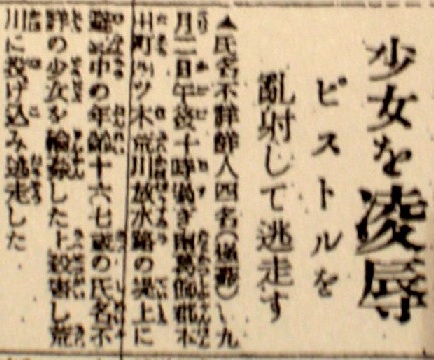 少女を凌辱
ピストルを
亂射して逃走す
▲氏名不詳鮮人四名は九
月二日午後十時過ぎ南葛飾郡本
田町四ツ木荒川放水路の堤上に
避難中の年齢十六七歳の氏名不
詳の少女を輪姦した上殺害し荒
川に投げ込み逃走した